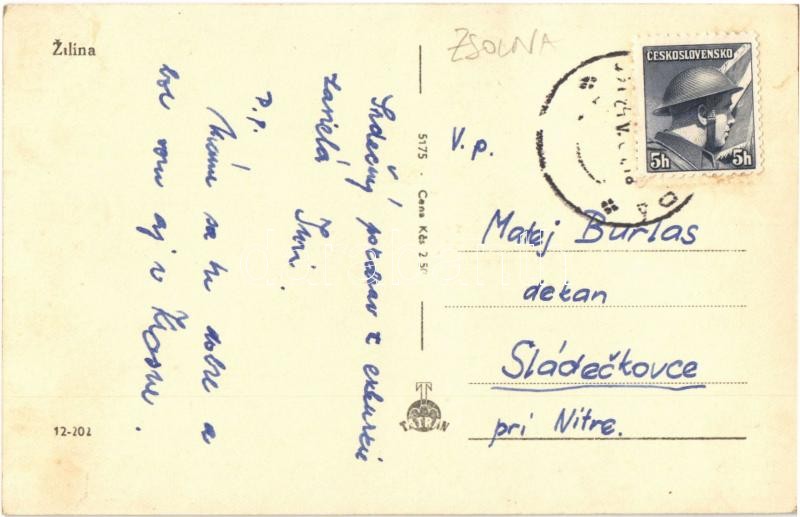 Žilina
ZSOLNA
ČESKOSLOVENSKO
5h 5h
V. p.
Matej Burlas
dekan
Sládečkovce
pri Nitre.
5175 · Cena Kčs 2·50
TATRAN
12-202
Srdečný pozdrav z exkurzie
zasiela
P. p.
Máme sa tu dobre a
bol som aj v